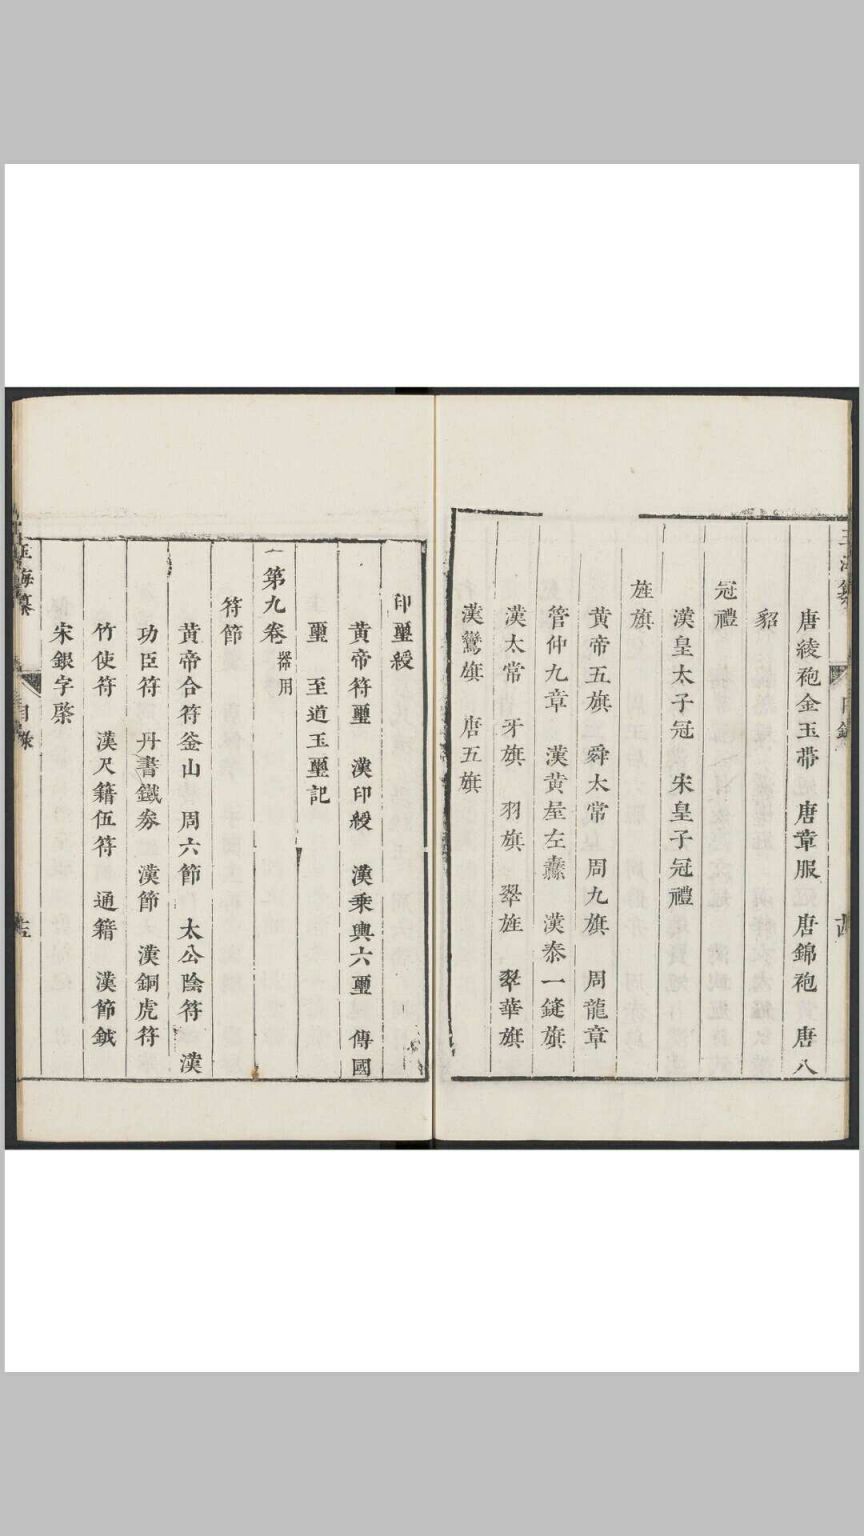 唐綾袍金玉帶　唐章服　唐錦袍　唐八
貂
冠禮
漢皇太子冠　宋皇子冠禮
旌旗
黃帝五旗　舜太常　周九旗　周龍章
管仲九章　漢黃屋左纛　漢泰一鏠旗
漢太常　牙旗　羽旗　翠旌　翠華旗
漢鸞旗　唐五旗
印璽綬
黃帝符璽　漢印綬　漢乘輿六璽　傳國
璽　至道玉璽記
第九卷 器用
符節
黃帝合符釜山　周六節　太公陰符　漢
功臣符　丹書鐵券　漢節　漢銅虎符
竹使符　漢尺籍伍符　通籍　漢節鉞
宋銀字棨
玉海纂
目錄